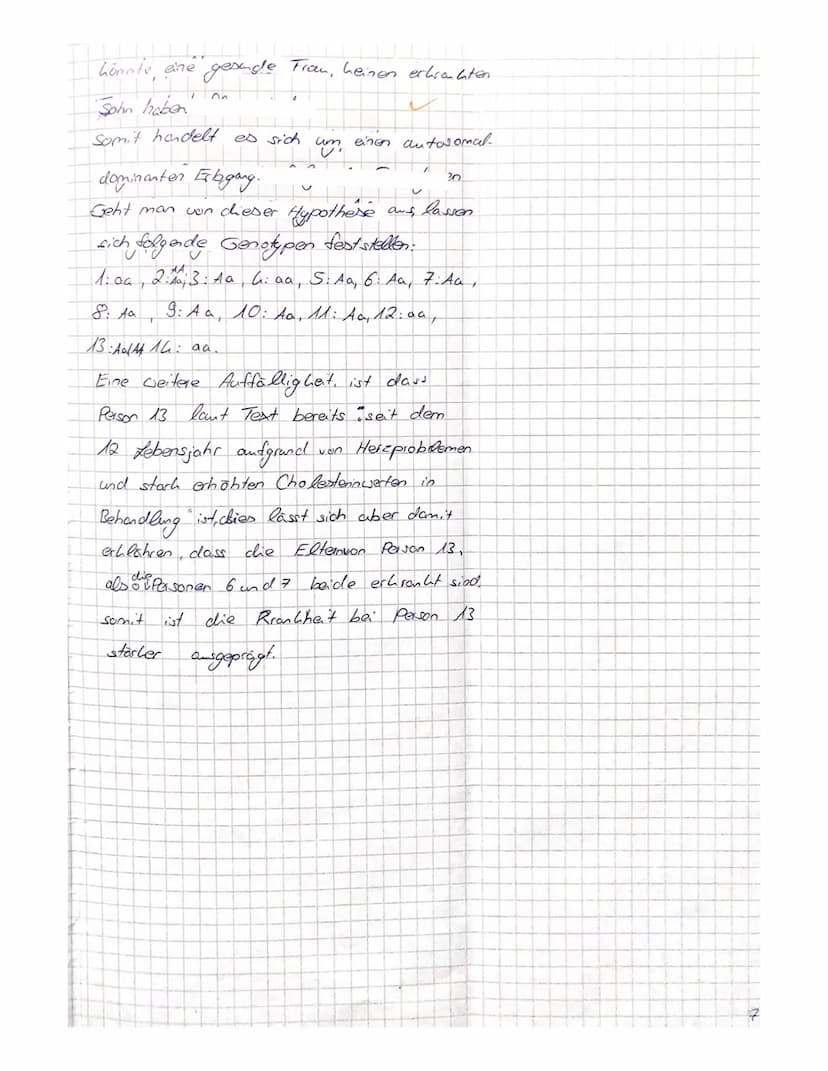 könnte, eine gesunde Frau, keinen erkrankten
Sohn haben
Somit handelt es sich um, einen autosomal-
dominanten Erbgang.
Geht man von dieser Hypothese aus, lassen
sich folgende Genotypen feststellen:
1: aa, 2: AA 3: Aa, 4: aa, 5: Aa, 6: Aa, 7: Aa,
8: Aa, 9: Aa, 10: Aa, 11: Aa, 12: aa,
13: Aa/AA 14: aa.
Eine weitere Auffälligkeit, ist dass
Person 13 laut Text bereits "seit dem
12 Lebensjahr aufgrund von Herzproblemen
und stark erhöhten Cholesterinwerten in
Behandlung" ist, dies lässt sich aber damit
erklären, dass die Eltern von Person 13,
also die Personen 6 und 7 beide erkrankt sind,
somit ist die Krankheit bei Person 13
stärker ausgeprägt.
7